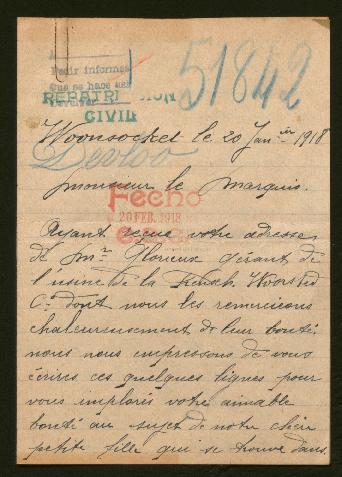 Pedir informes
que se hace
51842
REPATRI SION
CIVIL
Woonsocket le 20 Janier 1918
Devloo
Monsieur le Marquis.
Fecho
20 FEB. 1918
Ayant reçue votre adresse
de Mr Glorieux gérant de
l'usine de la French Woorsted
Co dont nous les remercions
chaleureusement de leur bonté,
nous nous empressons de vous
écrires ces quelques lignes pour
vous implorés votre aimable
bonté au sujet de notre chère
petite fille qui se trouve dans